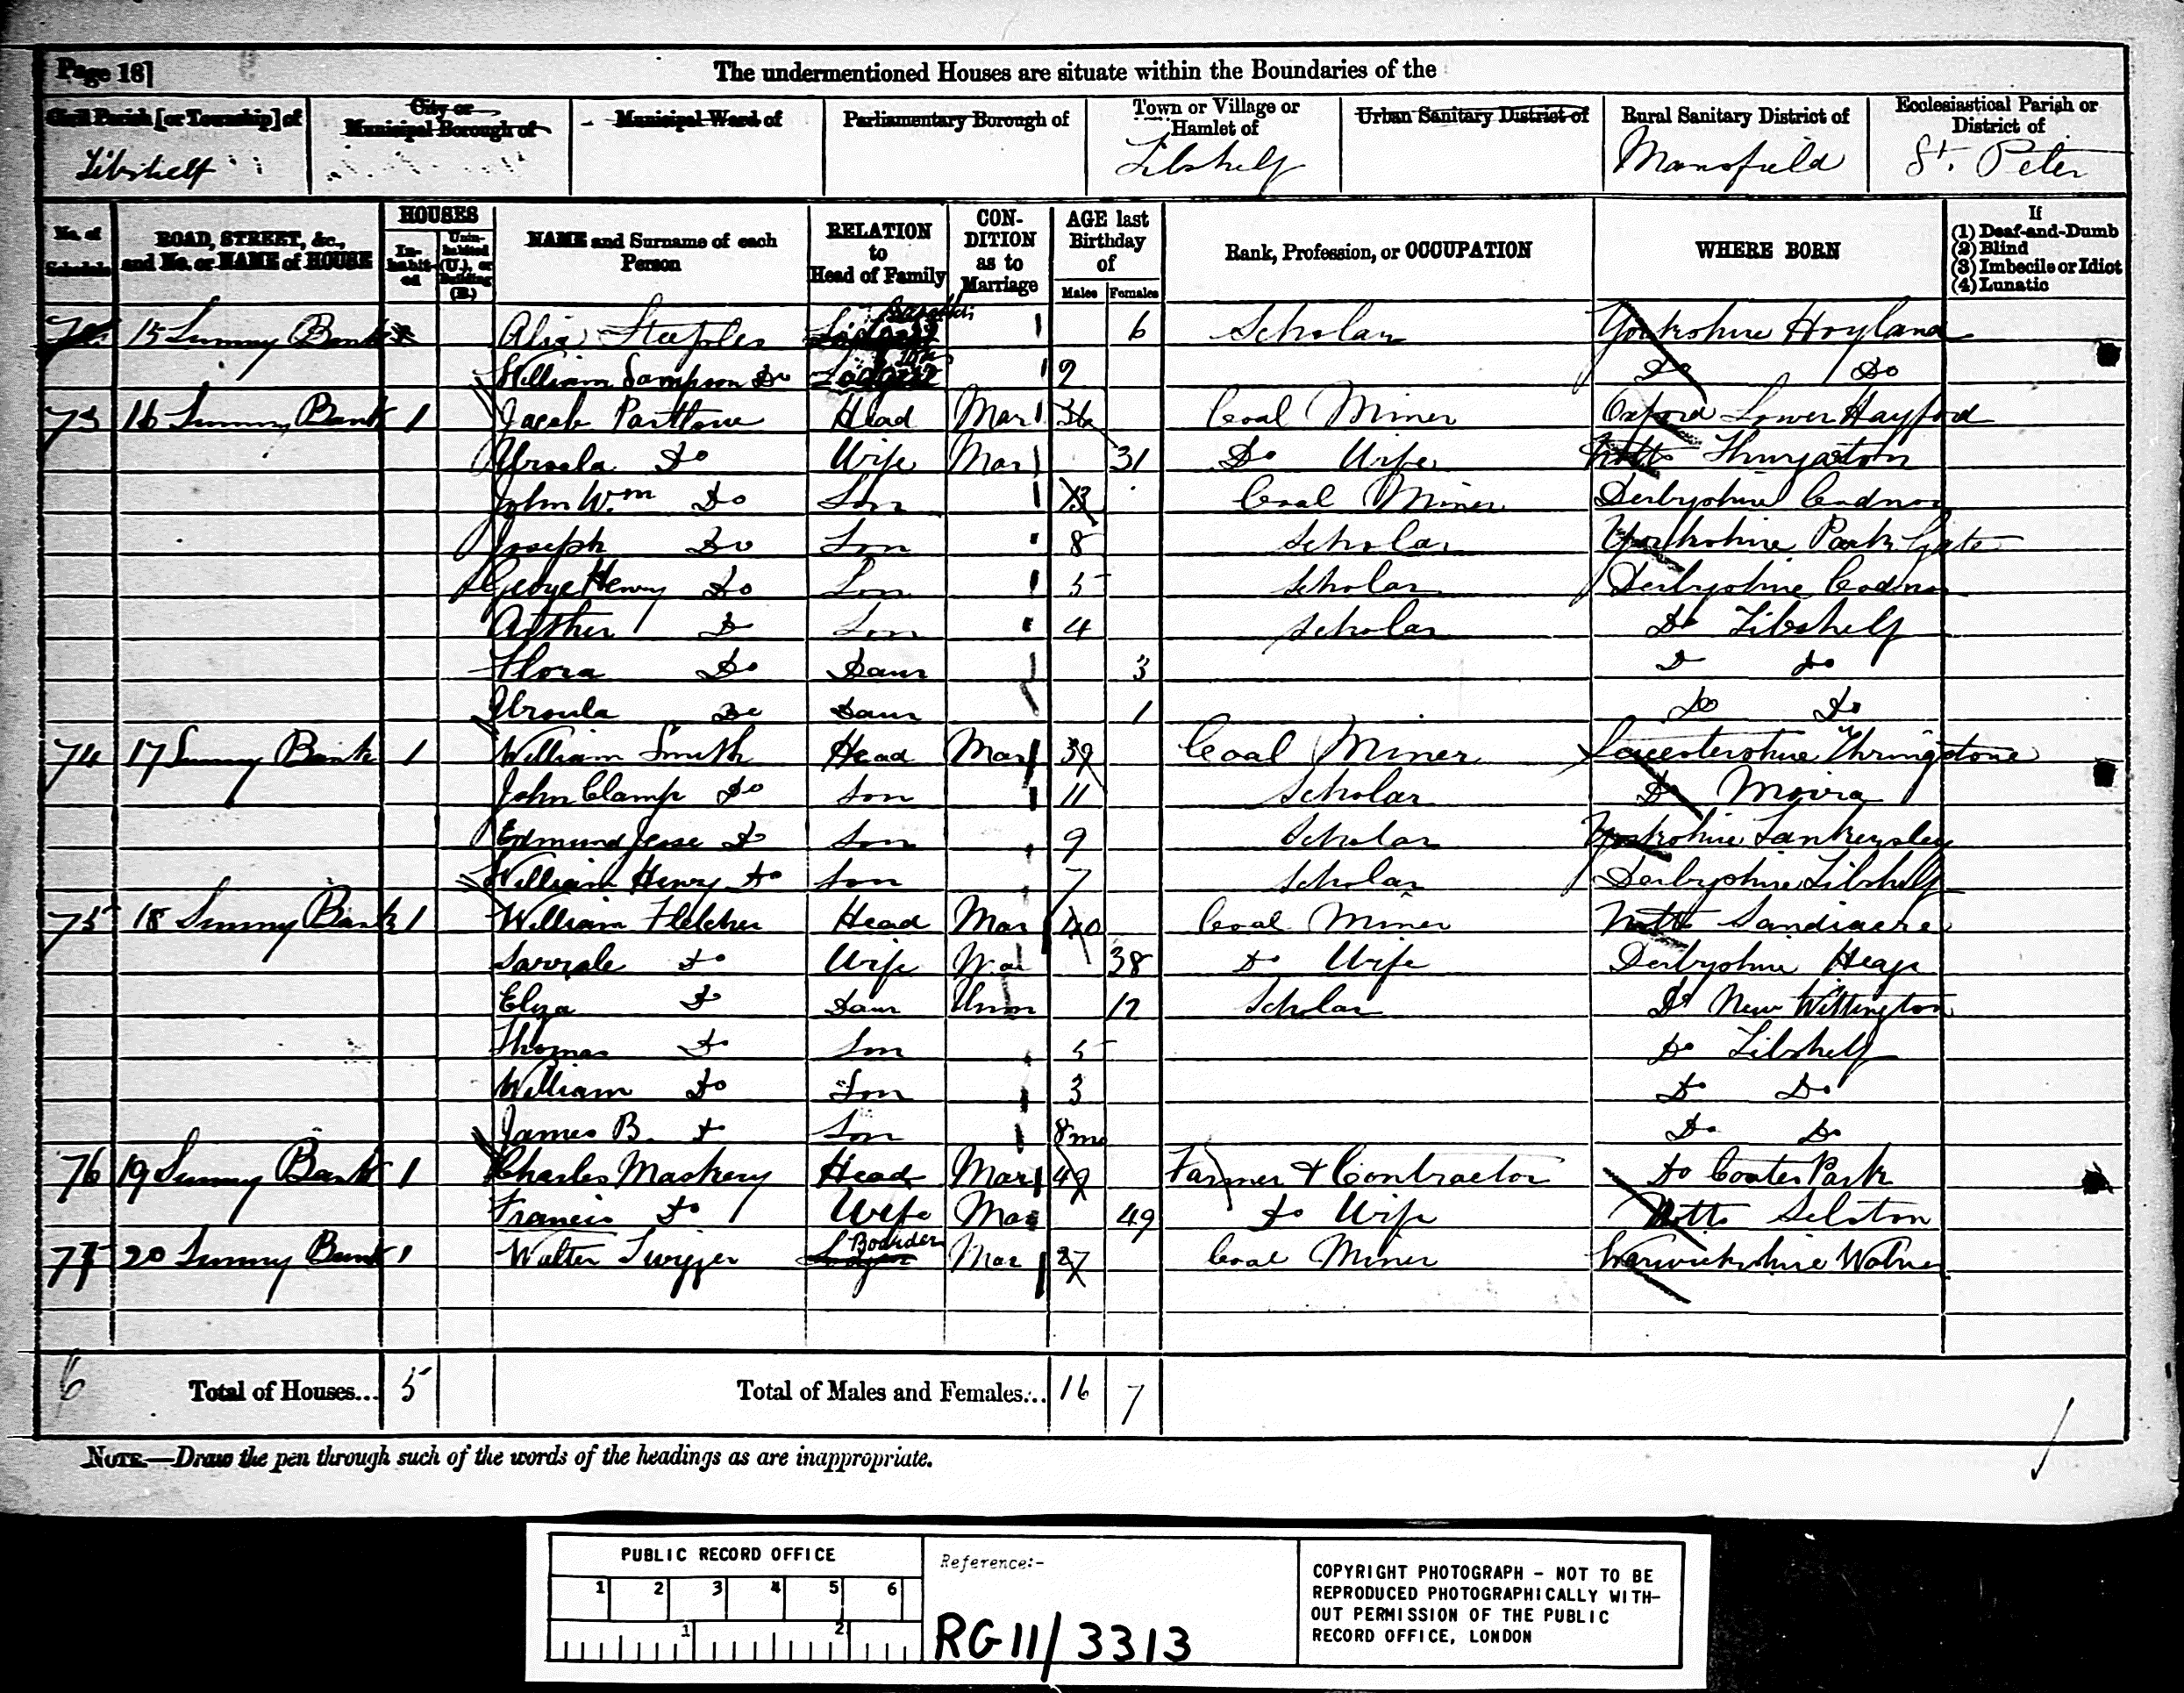 Page 18]
The undermentioned Houses are situate within the Boundaries of the
Civil Parish [or Township] of
City or Municipal Borough of
Municipal Ward of
Parliamentary Borough of
Town or Village or Hamlet of
Urban Sanitary District of
Rural Sanitary District of
Ecclesiastical Parish or District of
Tibshelf Tibshelf Mansfield St. Peter
No. of Schedule
ROAD, STREET, &c., and No. or NAME of HOUSE
HOUSES
In-habit-ed
Unin-habited (U.), or Building (B.)
NAME and Surname of each Person
RELATION to Head of Family
CON-DITION as to Marriage
AGE last Birthday of
Males Females
Rank, Profession, or OCCUPATION
WHERE BORN
If
(1) Deaf-and-Dumb
(2) Blind
(3) Imbecile or Idiot
(4) Lunatic
15 Sunny Bank Steeples Lodger 6 Scholar Yorkshire Hoyland
William Sampson Do Lodger 2 Do Do
73 16 Sunny Bank 1 Jacob Head Mar 36 Coal Miner Oxford Lower Hayford
Ursula Do Wife Mar 31 Do Wife Notts Thurgarton
John Wm Do Son 13 Coal Miner Derbyshire Codnor
Joseph Do Son 8 Scholar Yorkshire Park Gate
George Henry Do Son 5 Scholar Derbyshire Codnor
Arther Do Son 4 Scholar Do Tibshelf
Flora Do Daur 3 Do Do
Ursula Do Daur 1 Do Do
74 17 Sunny Bank 1 William Smith Head Mar 39 Coal Miner Leicestershire Thringstone
John Clamp Do Son 11 Scholar Do Moira
Edmund Jesse Do Son 9 Scholar Yorkshire Tankersley
William Henry Do Son 7 Scholar Derbyshire Tibshelf
75 18 Sunny Bank 1 William Fletcher Head Mar 40 Coal Miner Notts Sandiacre
Do Wife Mar 38 Do Wife Derbyshire Heage
Eliza Do Daur Unm 12 Scholar Do New Wittington
Thomas Do Son 5 Do Tibshelf
William Do Son 3 Do Do
James B. Do Son 8mo Do Do
76 19 Sunny Bank 1 Charles Maskery Head Mar 49 Farmer & Contractor Do Coates Park
Francis Do Wife Mar 49 Do Wife Notts Selston
77 20 Sunny Bank 1 Walter Twigger Boarder Mar 27 Coal Miner Warwickshire
6 Total of Houses... 5 Total of Males and Females... 16 7
NOTE.—Draw the pen through such of the words of the headings as are inappropriate.
PUBLIC RECORD OFFICE
1 2 3 4 5 6
1 2
Reference:-
RG 11/3313
COPYRIGHT PHOTOGRAPH - NOT TO BE
REPRODUCED PHOTOGRAPHICALLY WITH-
OUT PERMISSION OF THE PUBLIC
RECORD OFFICE, LONDON